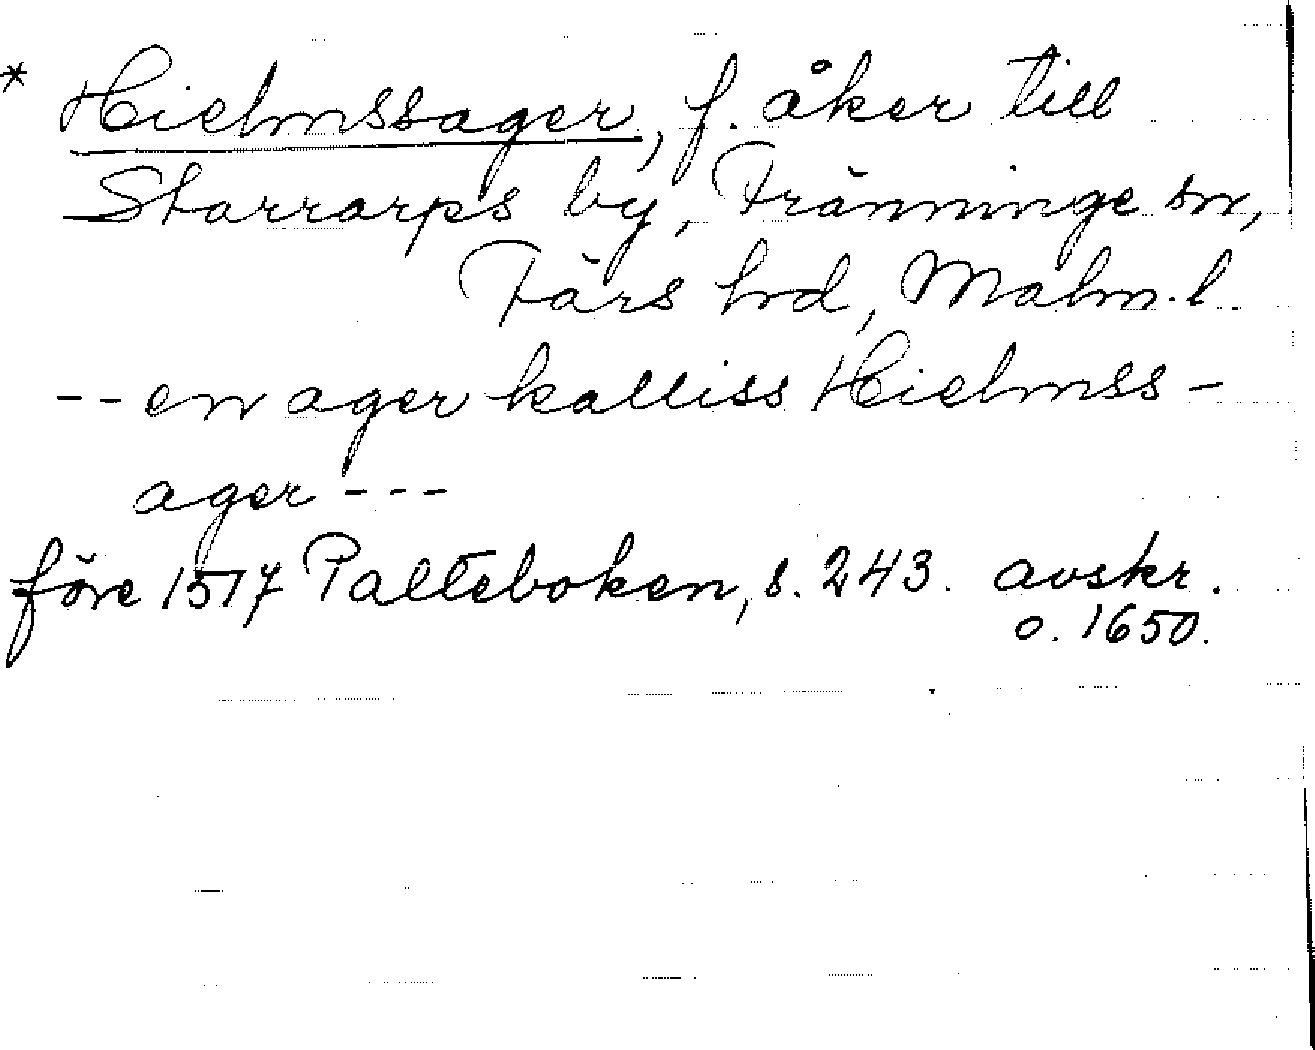 * Hielmssager, f. åker till
Starrarps by, Tränninge sn,
Färs hd, Malm. l.
-- en ager kalliss Hielmss-
ager ---
före 1517 Palteboken, s. 243. avskr.
o. 1650.